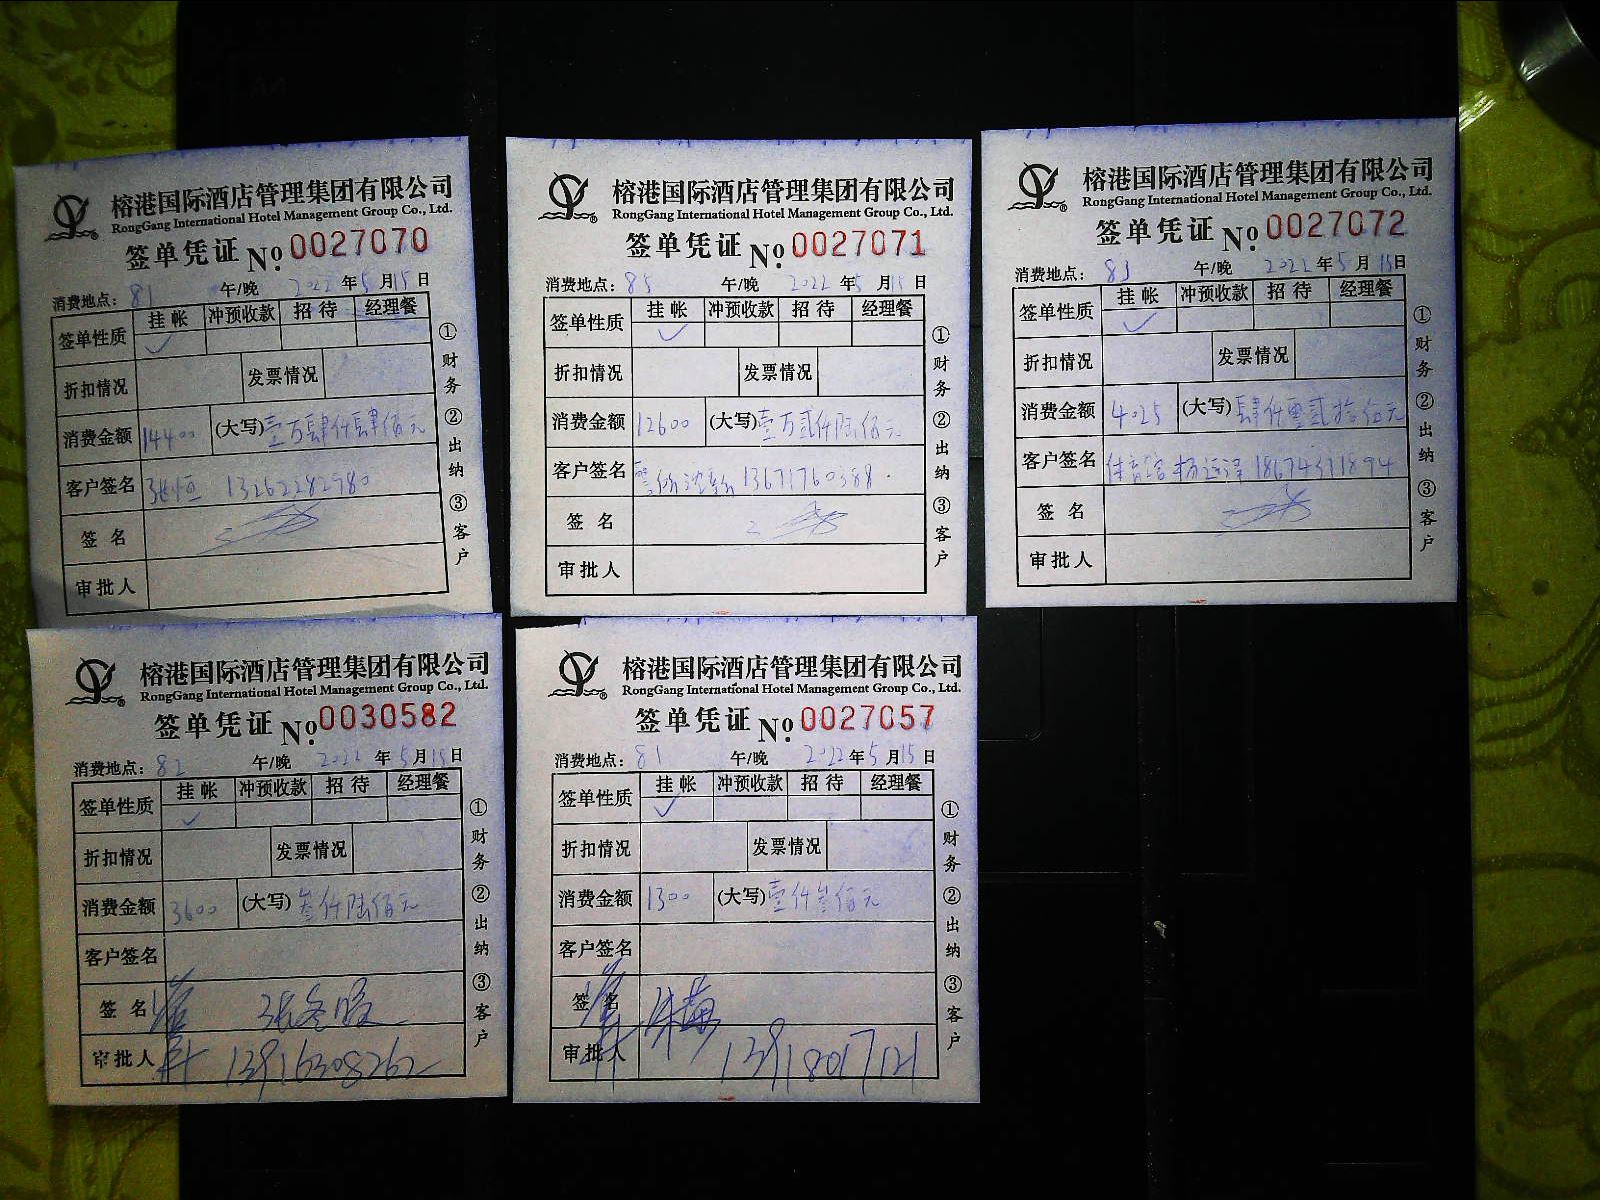 榕港国际酒店管理集团有限公司
RongGang International Hotel Management Group Co., Ltd.
签单凭证 No. 0027070
消费地点: 81 午/晚 2022 年 5 月 15 日
签单性质 挂帐 冲预收款 招待 经理餐
✓
折扣情况 发票情况
消费金额 14400 (大写) 壹万肆仟肆佰元
客户签名 张恒 13262282980
签名
审批人
①财务 ②出纳 ③客户
榕港国际酒店管理集团有限公司
RongGang International Hotel Management Group Co., Ltd.
签单凭证 No. 0027071
消费地点: 85 午/晚 2022 年 5 月 15 日
签单性质 挂帐 冲预收款 招待 经理餐
✓
折扣情况 发票情况
消费金额 12600 (大写) 壹万贰仟陆佰元
客户签名 13671760388
签名
审批人
①财务 ②出纳 ③客户
榕港国际酒店管理集团有限公司
RongGang International Hotel Management Group Co., Ltd.
签单凭证 No. 0027072
消费地点: 83 午/晚 2022 年 5 月 15 日
签单性质 挂帐 冲预收款 招待 经理餐
✓
折扣情况 发票情况
消费金额 4025 (大写) 肆仟零贰拾伍元
客户签名 体育馆 杨远泽 18674371894
签名
审批人
①财务 ②出纳 ③客户
榕港国际酒店管理集团有限公司
RongGang International Hotel Management Group Co., Ltd.
签单凭证 No. 0030582
消费地点: 82 午/晚 2022 年 5 月 15 日
签单性质 挂帐 冲预收款 招待 经理餐
✓
折扣情况 发票情况
消费金额 3600 (大写) 叁仟陆佰元
客户签名
签名
审批人 13916308262
①财务 ②出纳 ③客户
榕港国际酒店管理集团有限公司
RongGang International Hotel Management Group Co., Ltd.
签单凭证 No. 0027057
消费地点: 81 午/晚 2022 年 5 月 15 日
签单性质 挂帐 冲预收款 招待 经理餐
✓
折扣情况 发票情况
消费金额 1300 (大写) 壹仟叁佰元
客户签名
签名 朱梅
审批人 13918017121
①财务 ②出纳 ③客户